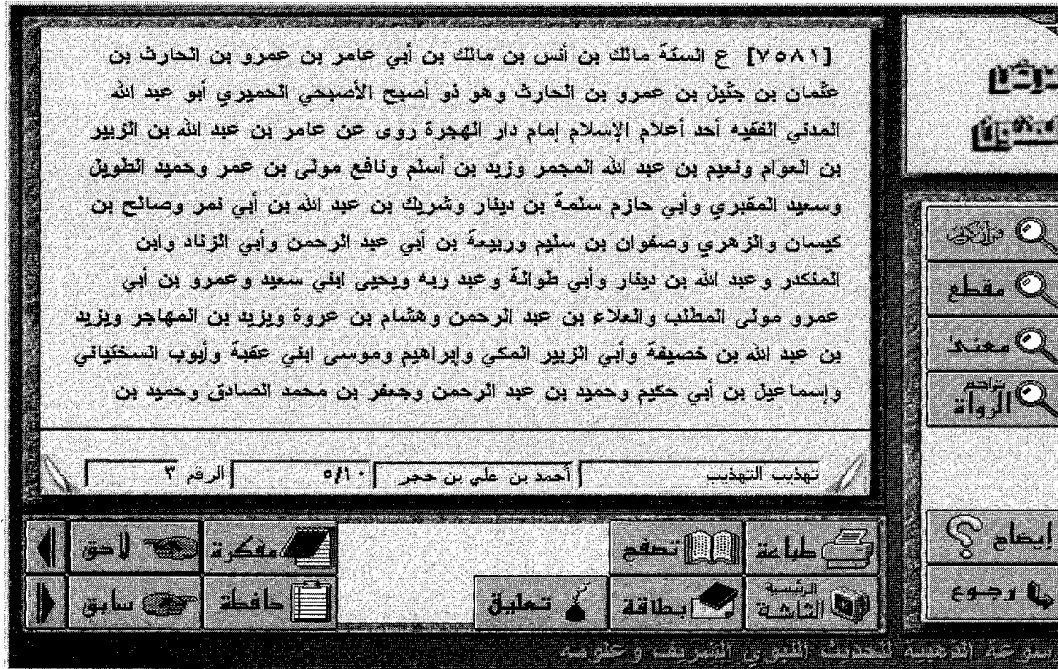 [٧٥٨١] ع الستة مالك بن أنس بن مالك بن أبي عامر بن عمرو بن الحارث بن
عثمان بن جثيل بن عمرو بن الحارث وهو ذو أصبح الأصبحي الحميري أبو عبد الله
المدني الفقيه أحد أعلام الإسلام إمام دار الهجرة روى عن عامر بن عبد الله بن الزبير
بن العوام ونعيم بن عبد الله المجمر وزيد بن أسلم ونافع مولى بن عمر وحميد الطويل
وسعيد المقبري وأبي حازم سلمة بن دينار وشريك بن عبد الله بن أبي نمر وصالح بن
كيسان والزهري وصفوان بن سليم وربيعة بن أبي عبد الرحمن وأبي الزناد وابن
المنكدر وعبد الله بن دينار وأبي طوالة وعبد ربه ويحيى ابني سعيد وعمرو بن أبي
عمرو مولى المطلب والعلاء بن عبد الرحمن وهشام بن عروة ويزيد بن المهاجر ويزيد
بن عبد الله بن خصيفة وأبي الزبير المكي وإبراهيم وموسى ابني عقبة وأيوب السختياني
وإسماعيل بن أبي حكيم وحميد بن عبد الرحمن وجعفر بن محمد الصادق وحميد بن
تهذيب التهذيب أحمد بن علي بن حجر ٥/١٠ الرقم ٣
مقطع
معنى
تراجم
الرواة
إيضاح
رجوع
طباعة تصفح مفكرة لاحق
الرئيسية
الشاشة بطاقة تعليق حافظة سابق
للحديث النبوي الشريف وعلومه